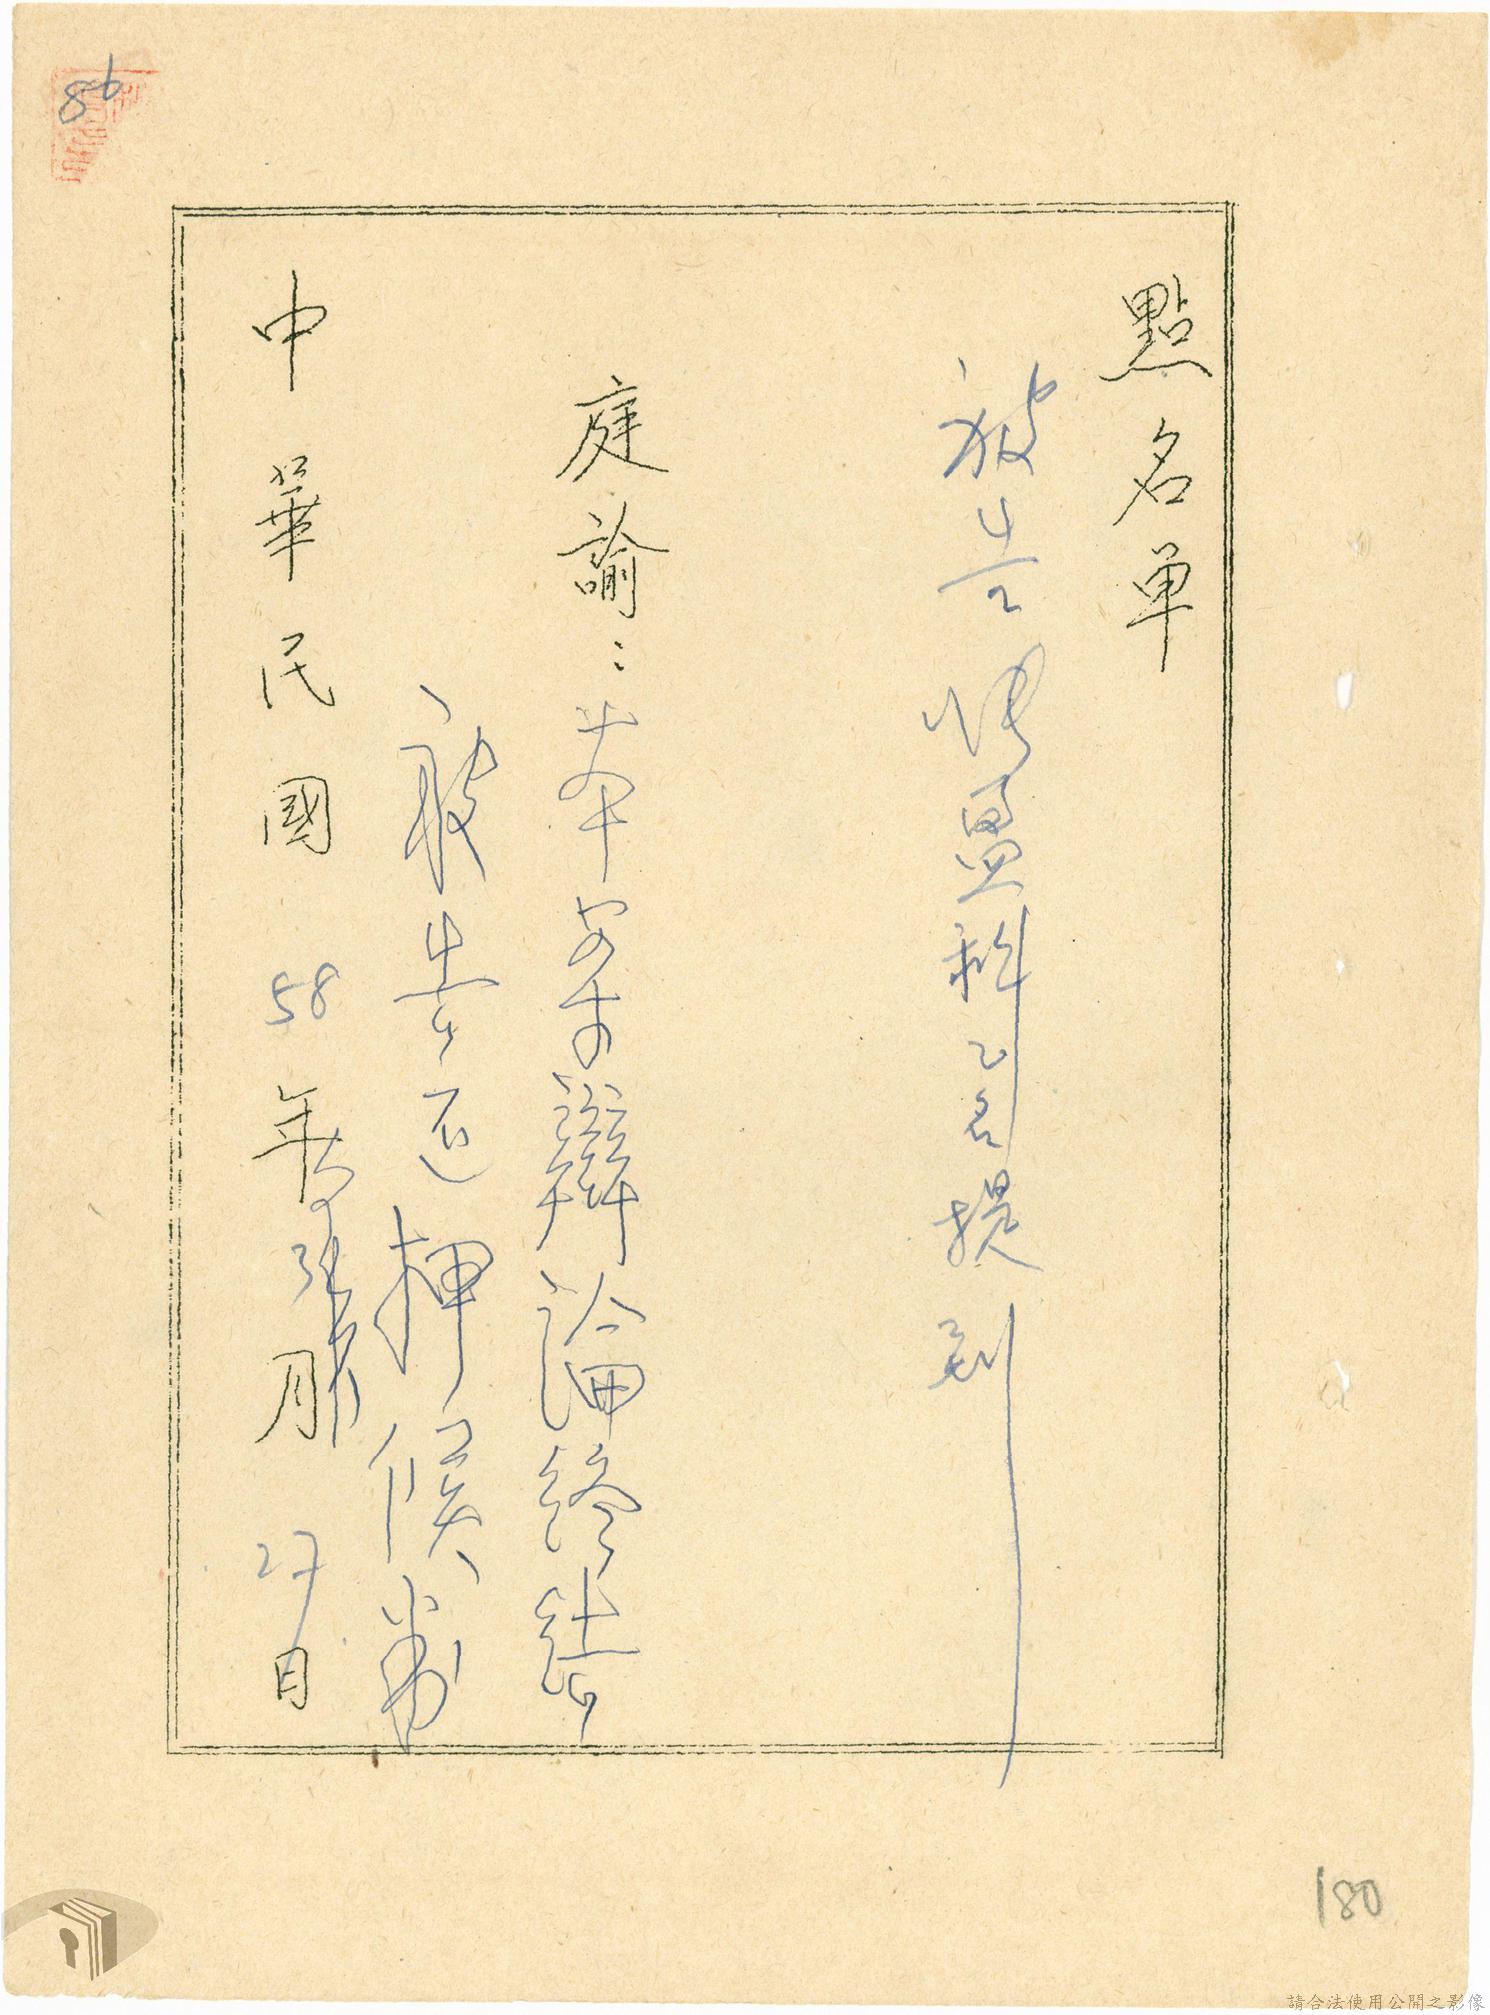 86
點名單
被告
乙名提到
庭諭：本案辯論終結
被告還押候判
中華民國58年月27日
180
請合法使用公開之影像